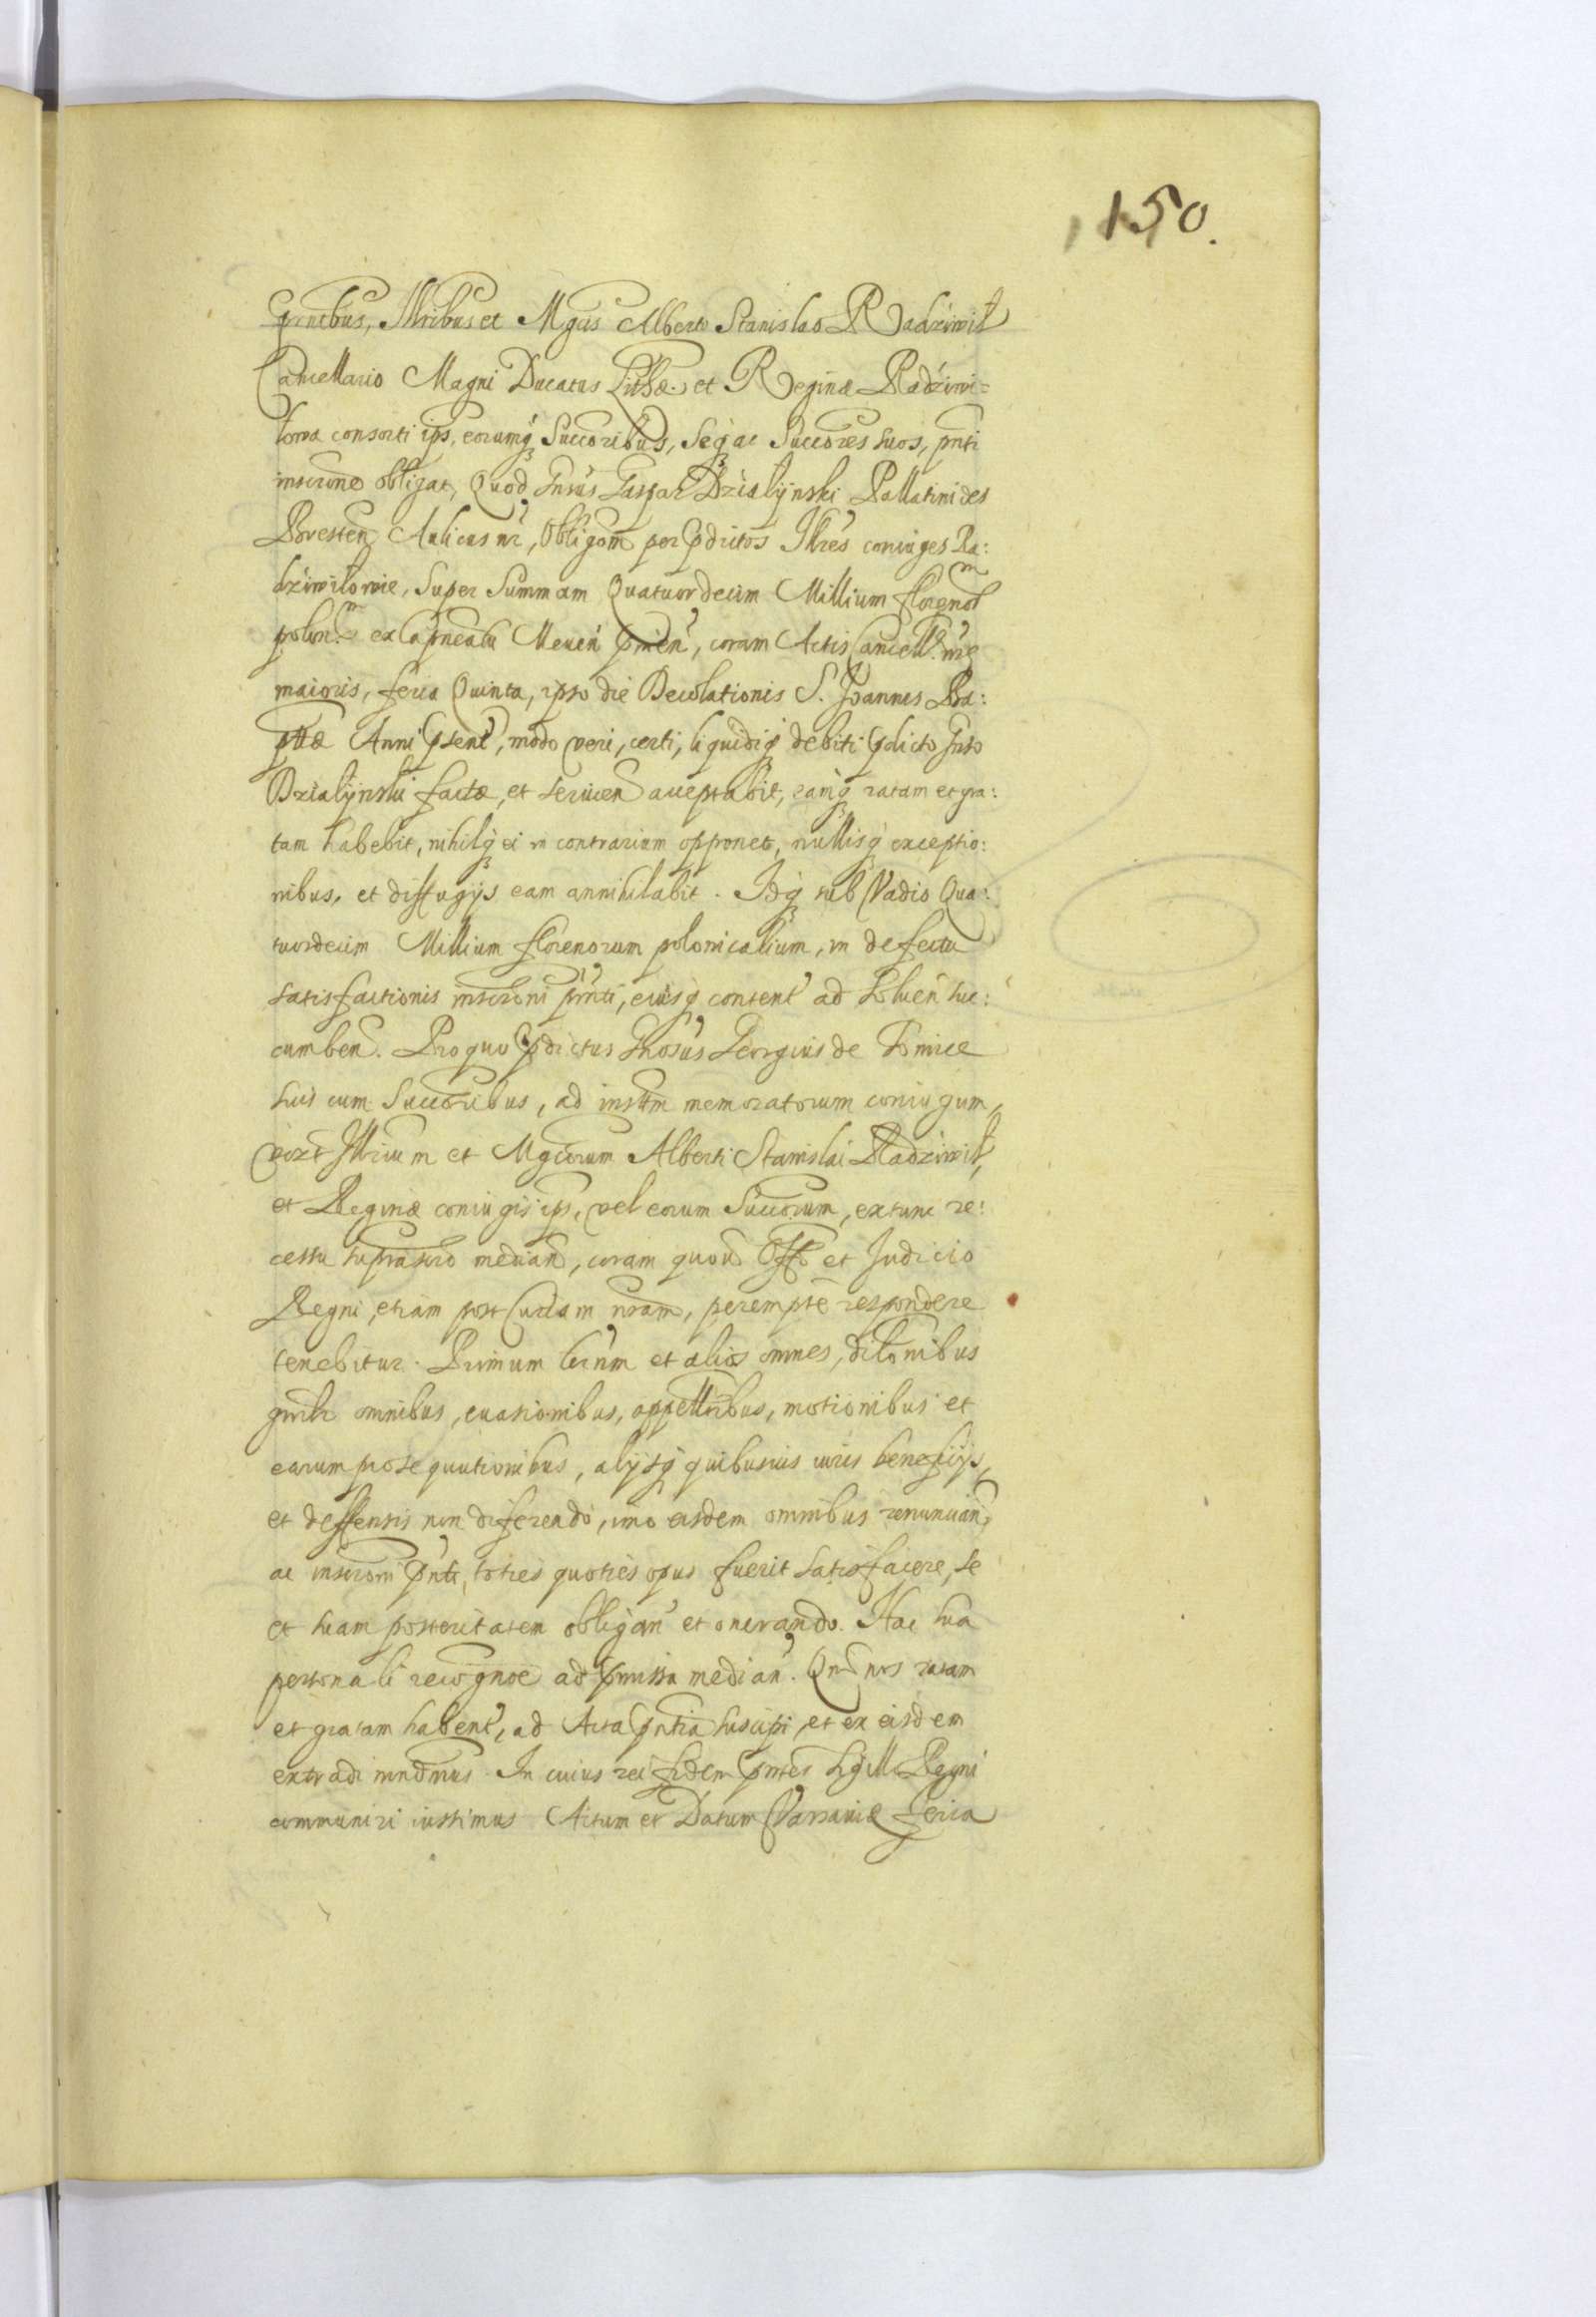 150.
Prncbus, Illribus et Mgcis Alberto Stanislao Radziwił
Cancellario Magni Ducatus Litthæ. et Reginæ Radziwi=
łowa consorti ips, eorumq̃ Succoribus, Seq̃ ac Succores suos, pnti
inscrone obligat, Quod Gnsus Gaspar Dzialÿnski Pallatinides
Bresteñ Aulicus nr, Obligom per pdictos Illres coniuges Ra:
dziwiłowie, Super Summam Quatuordecim Millium florenor
polon. ex Capneatu Meueñ pmen, coram Actis Cancell. nræ
maioris, feria Quinta, ipso die Decolationis S. Joannis Ba:
pttæ Anni psent, modo veri, certi, liquidiq̃ debiti pdicto Gnso
Dzialÿnski factæ, et seruien acceptabit, eamq̃ ratam et gra:
tam habebit, nihilq̃ ei in contrarium opponet, nullisq̃ exceptio:
nibus, et diffugijs eam annihilabit. Idq̃ sub Vadio Qua:
tuordecim Millium florenorum polonicalium, in defectu
satisfactionis inscroni pnti, eiusq̃ content ad Soluen suc:
cumben. Pro quo pdictus Gnosus Georgius de
suis cum Succoribus, ad insttm memoratorum coniugum,
vizt Illrium et Mgcorum Alberti Stanislai Radziwił,
et Reginæ coniugis ips, vel eorum Succorum, extunc re:
cessu suprascro median, coram quouis Offo et Judicio
Regni, etiam post Curiam nram, perempte respondere
tenebitur. Primum terñm et alios omnes, dilonibus
gnrlr omnibus, euasionibus, appellnibus, motionibus et
earum prosequutionibus, alijsq̃ quibusuis iuris beneficijs,
et deffensis non diferendo, imo eisdem omnibus renuncian,
ac inscroni pnti, toties quoties opus fuerit satisfacere, se
et suam posteritatem obligan et onerando. Hac sua
personali recognoe ad pmissa median. Qnd nos ratam
et gratam habent, ad Acta pntia suscipi, et ex eisdem
extradi mndmus. In cuius rei fidem pntes sigill Regni
communiri iussimus Actum et Datum Varsaviæ feria